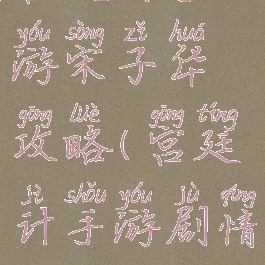 yóu sòng zǐ huá
游宋子华
gōng lüè gōng tíng
攻略(宫廷
jì shǒu yóu jù qíng
计手游剧情